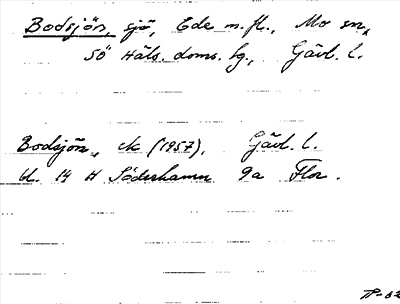 Bodsjön, sjö, Ede m.fl., Mo sn,
SÖ Häls. doms. hg., Gävl. l.
Bodsjön, ek (1957), Gävl. l.
bl. 14 H Söderhamn 9a Flor.
TP-62